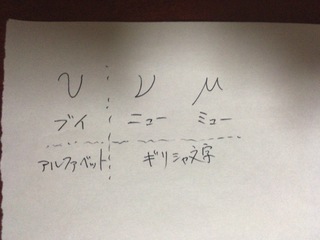 v ν μ
ブイ ニュー ミュー
アルファベット ギリシャ文字